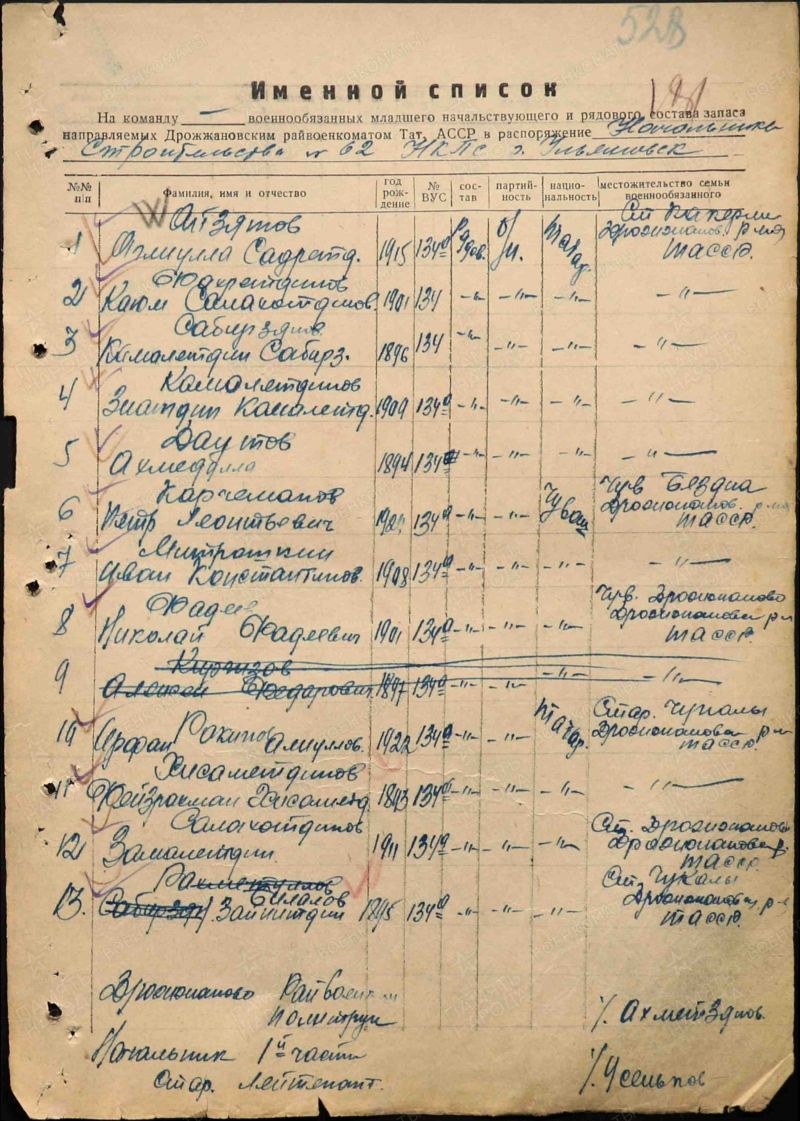 528
Именной список
На команду — военнообязанных младшего начальствующего и рядового состава запаса
направляемых Дрожжановским райвоенкоматом Тат. АССР в распоряжение Начальника
Строительства № 62 НКПС г. Ульяновск
№№ п/п | Фамилия, имя и отчество | год рождение | № ВУС | состав | партийность | национальность | местожительство семьи военнообязанного
Айзятов Ст Какерли
1 Садретд. 1915 134а Рядов. б/п. Татар. Дрожжанов. р-на
ТАССР.
Фахретдинов
2 Каюм Салахотдинов. 1901 134 -"- -"- -"- -"-
Сабирзянов
3 Камалетдин Сабирз. 1896 134 -"- -"- -"- -"-
Камалетдинов
4 Зиатдин Камалетд. 1909 134а -"- -"- -"- -"-
Даутов
5 Ахмедулла 1894 134а -"- -"- -"- -"-
Карчеманов Чув Бездна
6 Петр Леонтьевич 134а -"- -"- Чуваш Дрожжанов. р-на
ТАССР.
Митрошкин
7 Иван Константинов. 1908 134а -"- -"- -"- -"-
Фадеев Чув. Дрожжаново
8 Николай Фадеевич 1901 134а -"- -"- -"- Дрожжановск р-н
ТАССР.
Киргизов
9 Алексей Федорович 1897 134а -"- -"- -"- -"-
Рахипов Стар. Чукалы
10 Ирфан Алиуллов. 1922 134а -"- -"- Татар. Дрожжановск р-н
ТАССР.
Хисаметдинов
11 Хисаметд. 134а -"- -"- -"- -"-
Салахотдинов Ст. Дрожжаново
12 Замалетдин. 1911 134а -"- -"- -"- Дрожжановск р.
ТАССР.
Рахметуллов Ст. Чукалы
Билалов
13. Сабирзян Зайнитдин 1895 134а -"- -"- -"- Дрожжановск р-н
ТАССР.
Дрожжаново Райвоенком
Политрук /. Ахметзянов.
Начальник 1й части
Стар. Лейтенант. /.